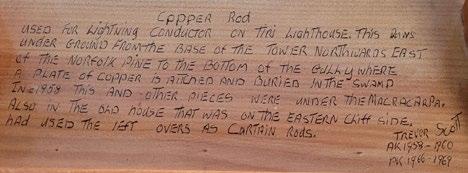 COPPER ROD
USED FOR LIGHTNING CONDUCTOR ON TIRI LIGHTHOUSE. THIS RUNS
UNDER GROUND FROM THE BASE OF THE TOWER NORTHWARDS EAST
OF THE NORFOLK PINE TO THE BOTTOM OF THE GULLY WHERE
A PLATE OF COPPER IS ATTCHED AND BURIED IN THE SWAMP
IN 1958 THIS AND OTHER PIECES WERE UNDER THE MACRACARPA.
ALSO IN THE OLD HOUSE THAT WAS ON THE EASTERN CLIFF SIDE.
HAD USED THE LEFT OVERS AS CURTAIN RODS.
TREVOR SCOTT
AK 1958-1960
PK 1966-1969